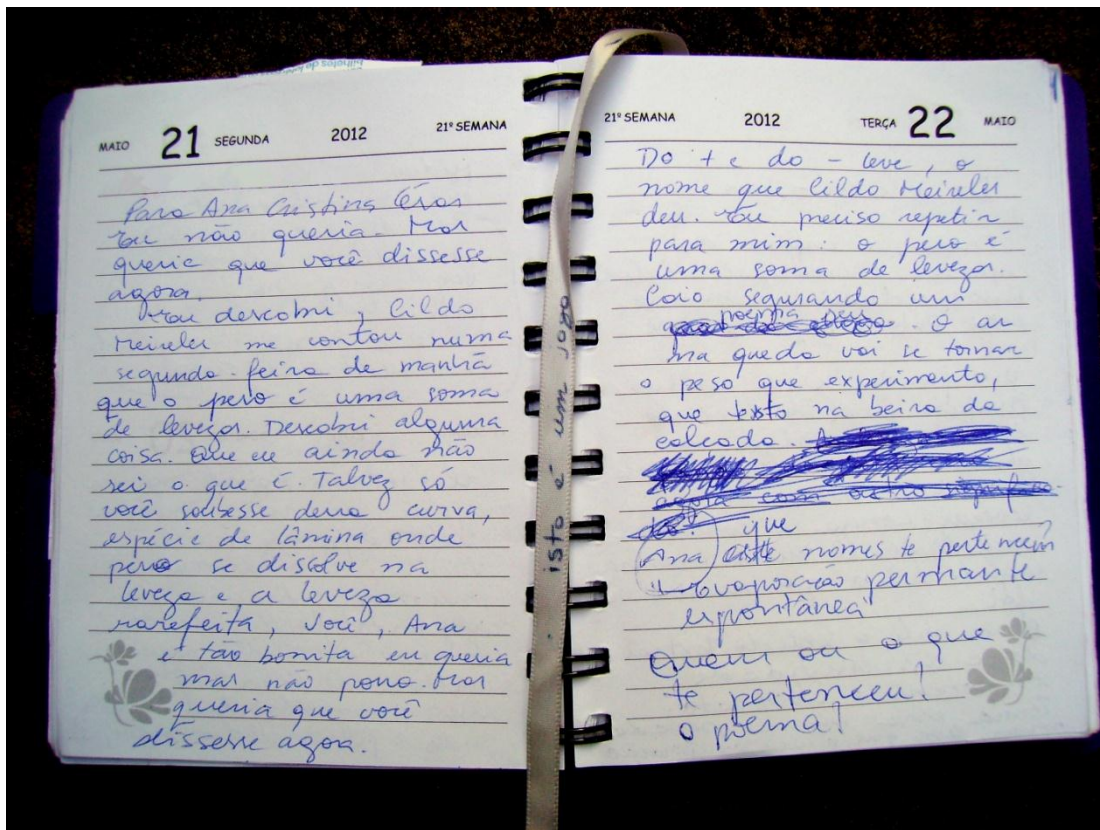 MAIO 21 SEGUNDA 2012 21º SEMANA
Para Ana Cristina César
Eu não queria. Mas
queria que você dissesse
agora.
Eu descobri, Cildo
Meireles me contou numa
segunda-feira de manhã
que o peso é uma soma
de levezas. Descobri alguma
coisa. Que eu ainda não
sei o que é. Talvez só
você soubesse dessa curva,
espécie de lâmina onde
peso se dissolve na
leveza e a leveza
rarefeita, você, Ana
é tão bonita eu queria
mas não posso. Mas
queria que você
dissesse agora.
isto é um jogo
21º SEMANA 2012 TERÇA 22 MAIO
Do + e do - leve, o
nome que Cildo Meireles
deu. Eu preciso repetir
para mim: o peso é
uma soma de levezas.
Caio segurando um
poema seu. O ar
na queda vai se tornar
o peso que experimento,
que testo na beira da
calçada.
agora com outro
que
Ana este nomes te pertencem
Evaporação permante
espontânea
Quem ou o que
te pertenceu!
o poema!